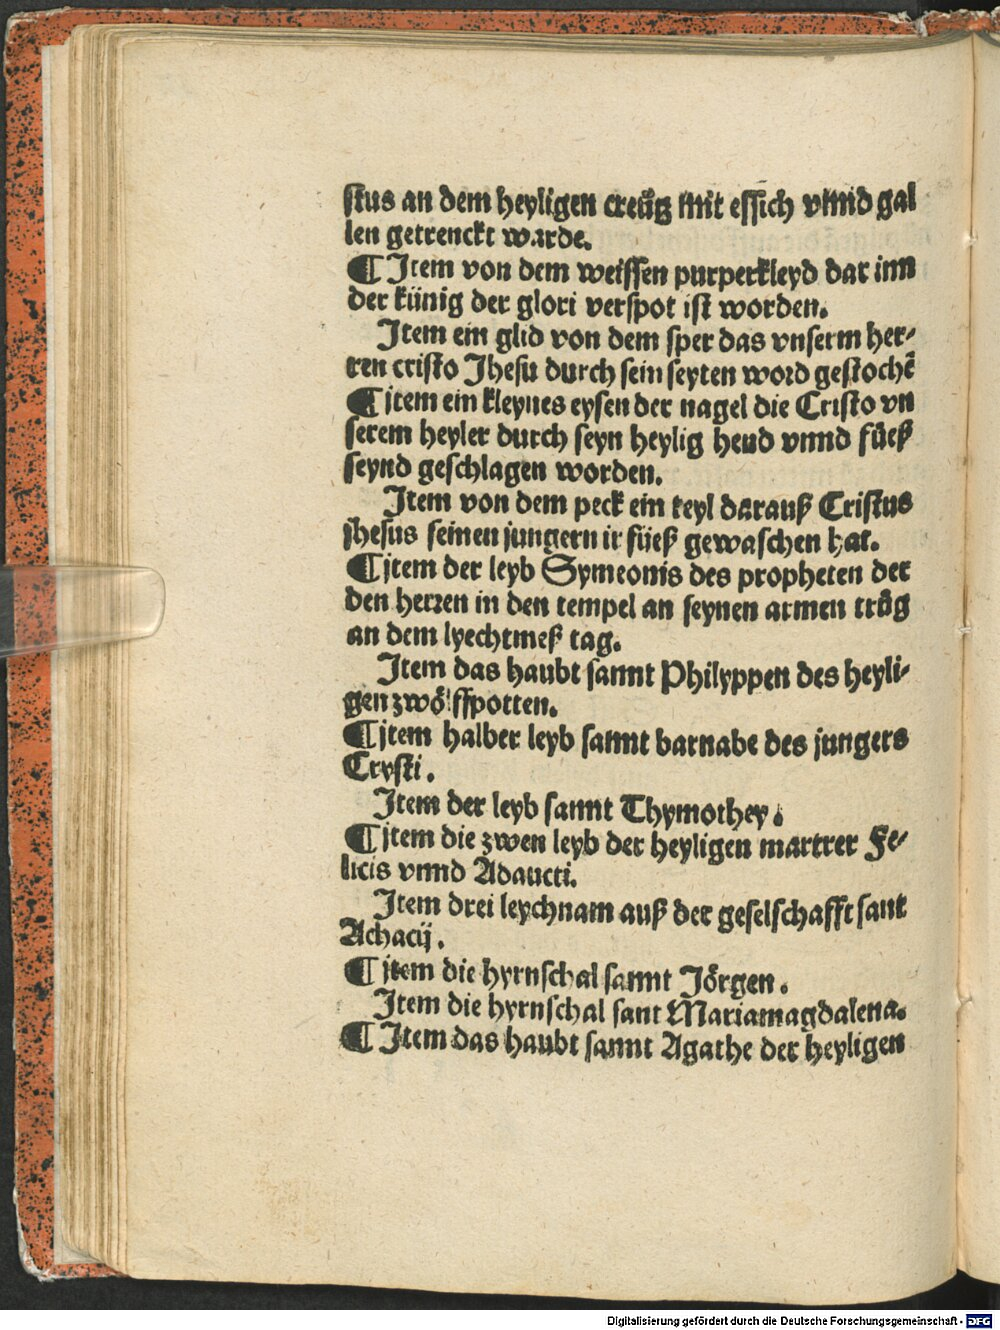 ſtus an dem heyligen creütz mit eſſich vnnd gal
len getrenckt warde.
¶ Item von dem weiſſen purperkleyd dar inn
der künig der glori verſpot iſt worden.
Item ein glid von dem ſper das vnſerm her⸗
ren criſto Jheſu durch ſein ſeyten word geſtochē
¶ item ein kleynes eyſen der nagel die Criſto vn
ſerem heyler durch ſeyn heylig hend vnnd füeß
ſeynd geſchlagen worden.
Item von dem peck ein teyl darauß Criſtus
jheſus ſeinen jungern ir füeß gewaſchen hat.
¶ item der leyb Symeonis des propheten der
den herren in den tempel an ſeynen armen trůg
an dem lyechtmeß tag.
Item das haubt ſannt Philyppen des heyli⸗
gen zwölffpotten.
¶ item halber leyb ſannt barnabe des jungers
Cryſti.
Item der leyb ſannt Thymothey.
¶ item die zwen leyb der heyligen martrer Fe⸗
licis vnnd Adaucti.
Item drei leychnam auß der geſelſchafft ſant
Achacij.
¶ item die hyrnſchal ſannt Jörgen.
Item die hyrnſchal ſant Mariamagdalena.
¶ Item das haubt ſannt Agathe der heyligen
Digitalisierung gefördert durch die Deutsche Forschungsgemeinschaft - DFG